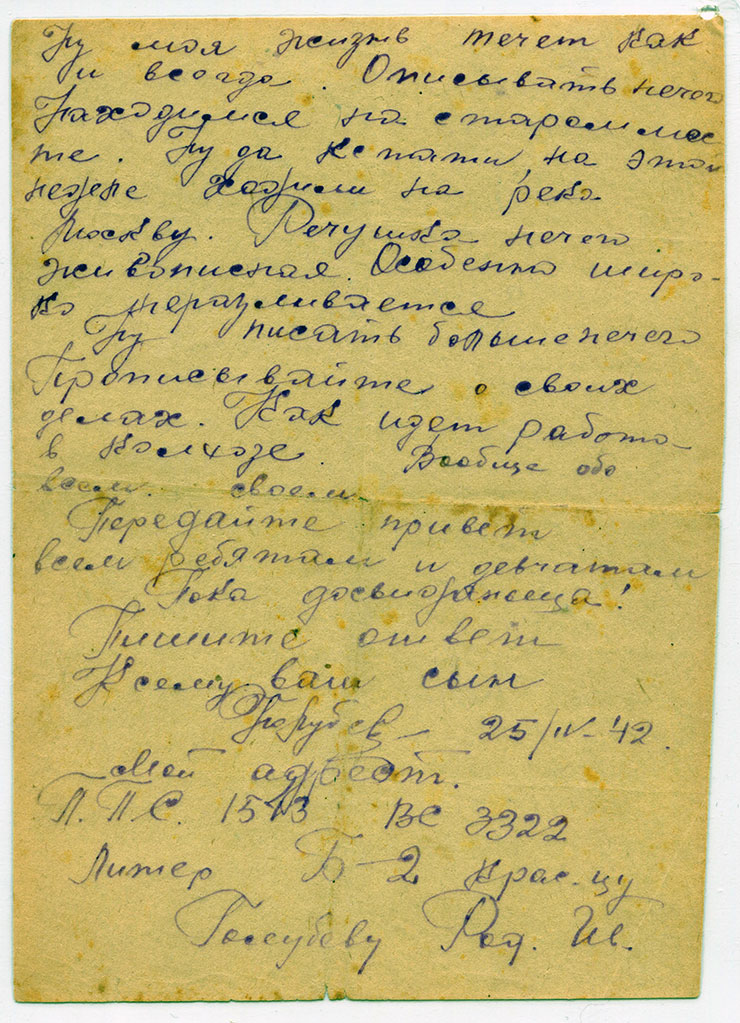 Ну моя жизнь течет как
и всегда. Описывать нечего
Находимся на старом мес
те. Ну да кстати, на этой
неделе ходили на реко
Москву. Речушка нечего
живописная. Особенно широ-
ко неразливается
Ну писать больше нечего
Прописывайте о своих
делах. Как идет работа
в колхозе. Вообще обо
всем своем
Передайте привет
всем ребятам и девчатам
Пока досвидания!
Пишите ответ
К сему ваш сын
25/IV-42.
Мой адрес
П.П.С. 1513 ВС 3322
Литер Б-2 крас-цу
Голубеву Ив.